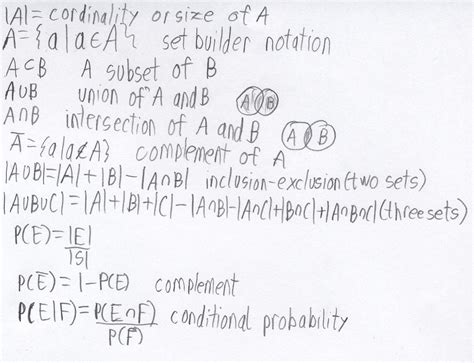 |A| = cordinality or size of A
A = {a|a∈A} set builder notation
A⊂B A subset of B
A∪B union of A and B A B
A∩B intersection of A and B A B
A̅ = {a|a∉A} complement of A
|A∪B|=|A|+|B|-|A∩B| inclusion-exclusion (two sets)
|A∪B∪C|=|A|+|B|+|C|-|A∩B|-|A∩C|+|B∩C|+|A∩B∩C| (three sets)
P(E)=|E|/|S|
P(E̅)=1-P(E) complement
P(E|F)=P(E∩F)/P(F) conditional probability